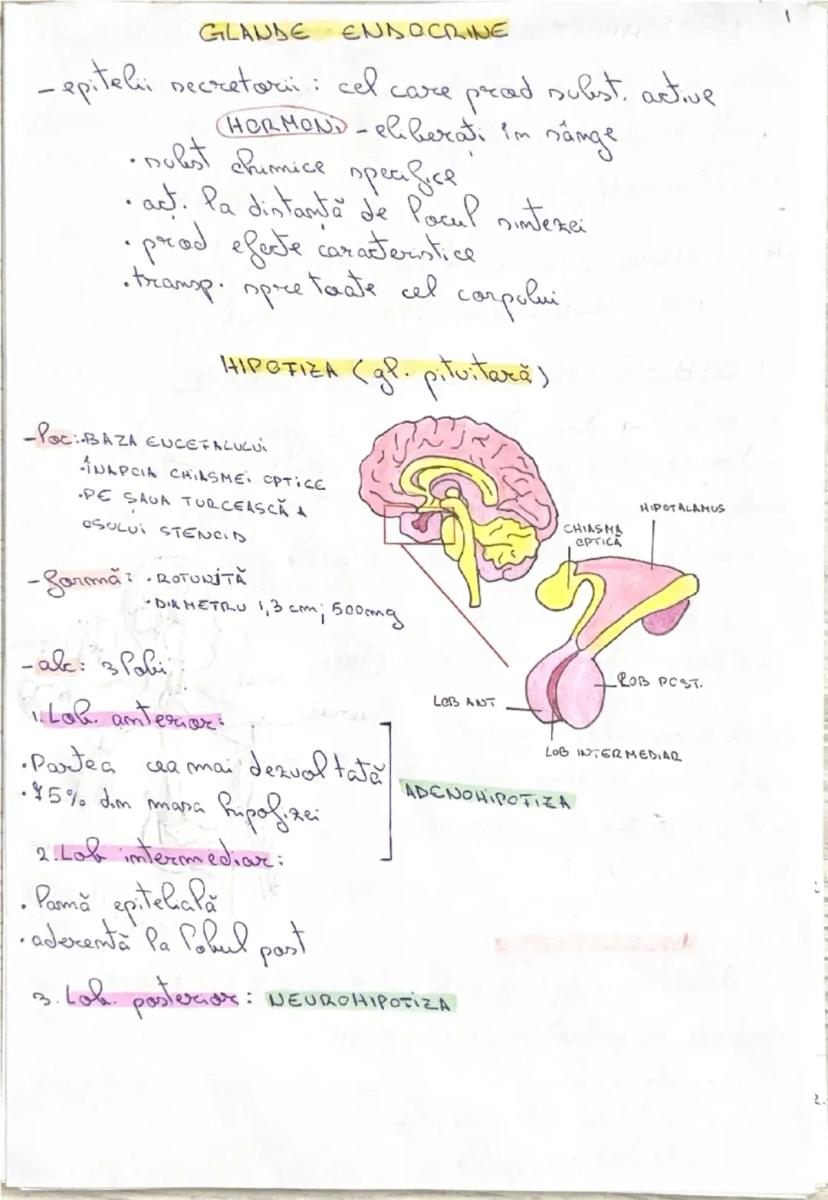 1
GLANDE ENDOCRINE
- epitelii secretorii : cel care prod subst. active
HORMONI - eliberați în sânge
• subst chimice specifice
• acț. la distanță de locul sintezei
• prod efecte caracteristice
• transp. spre toate cel corpului
HIPOFIZA (gl. pituitară)
- loc: • BAZA ENCEFALULUI
• ÎNAPOIA CHIASMEI OPTICE
• PE ȘAUA TURCEASCĂ A
OSULUI SFENOID
- formă: • ROTUNJITĂ
• DIAMETRU 1,3 cm; 500mg
- alc: 3 lobi
CHIASMA
OPTICĂ
HIPOTALAMUS
LOB ANT
LOB POST.
LOB INTERMEDIAR
1. Lob. anterior:
• Partea cea mai dezvoltată
• 75% din masa hipofizei
ADENOHIPOFIZA
2. Lob intermediar:
• lamă epitelială
• aderentă la lobul post
3. Lob. posterior: NEUROHIPOFIZA
2.